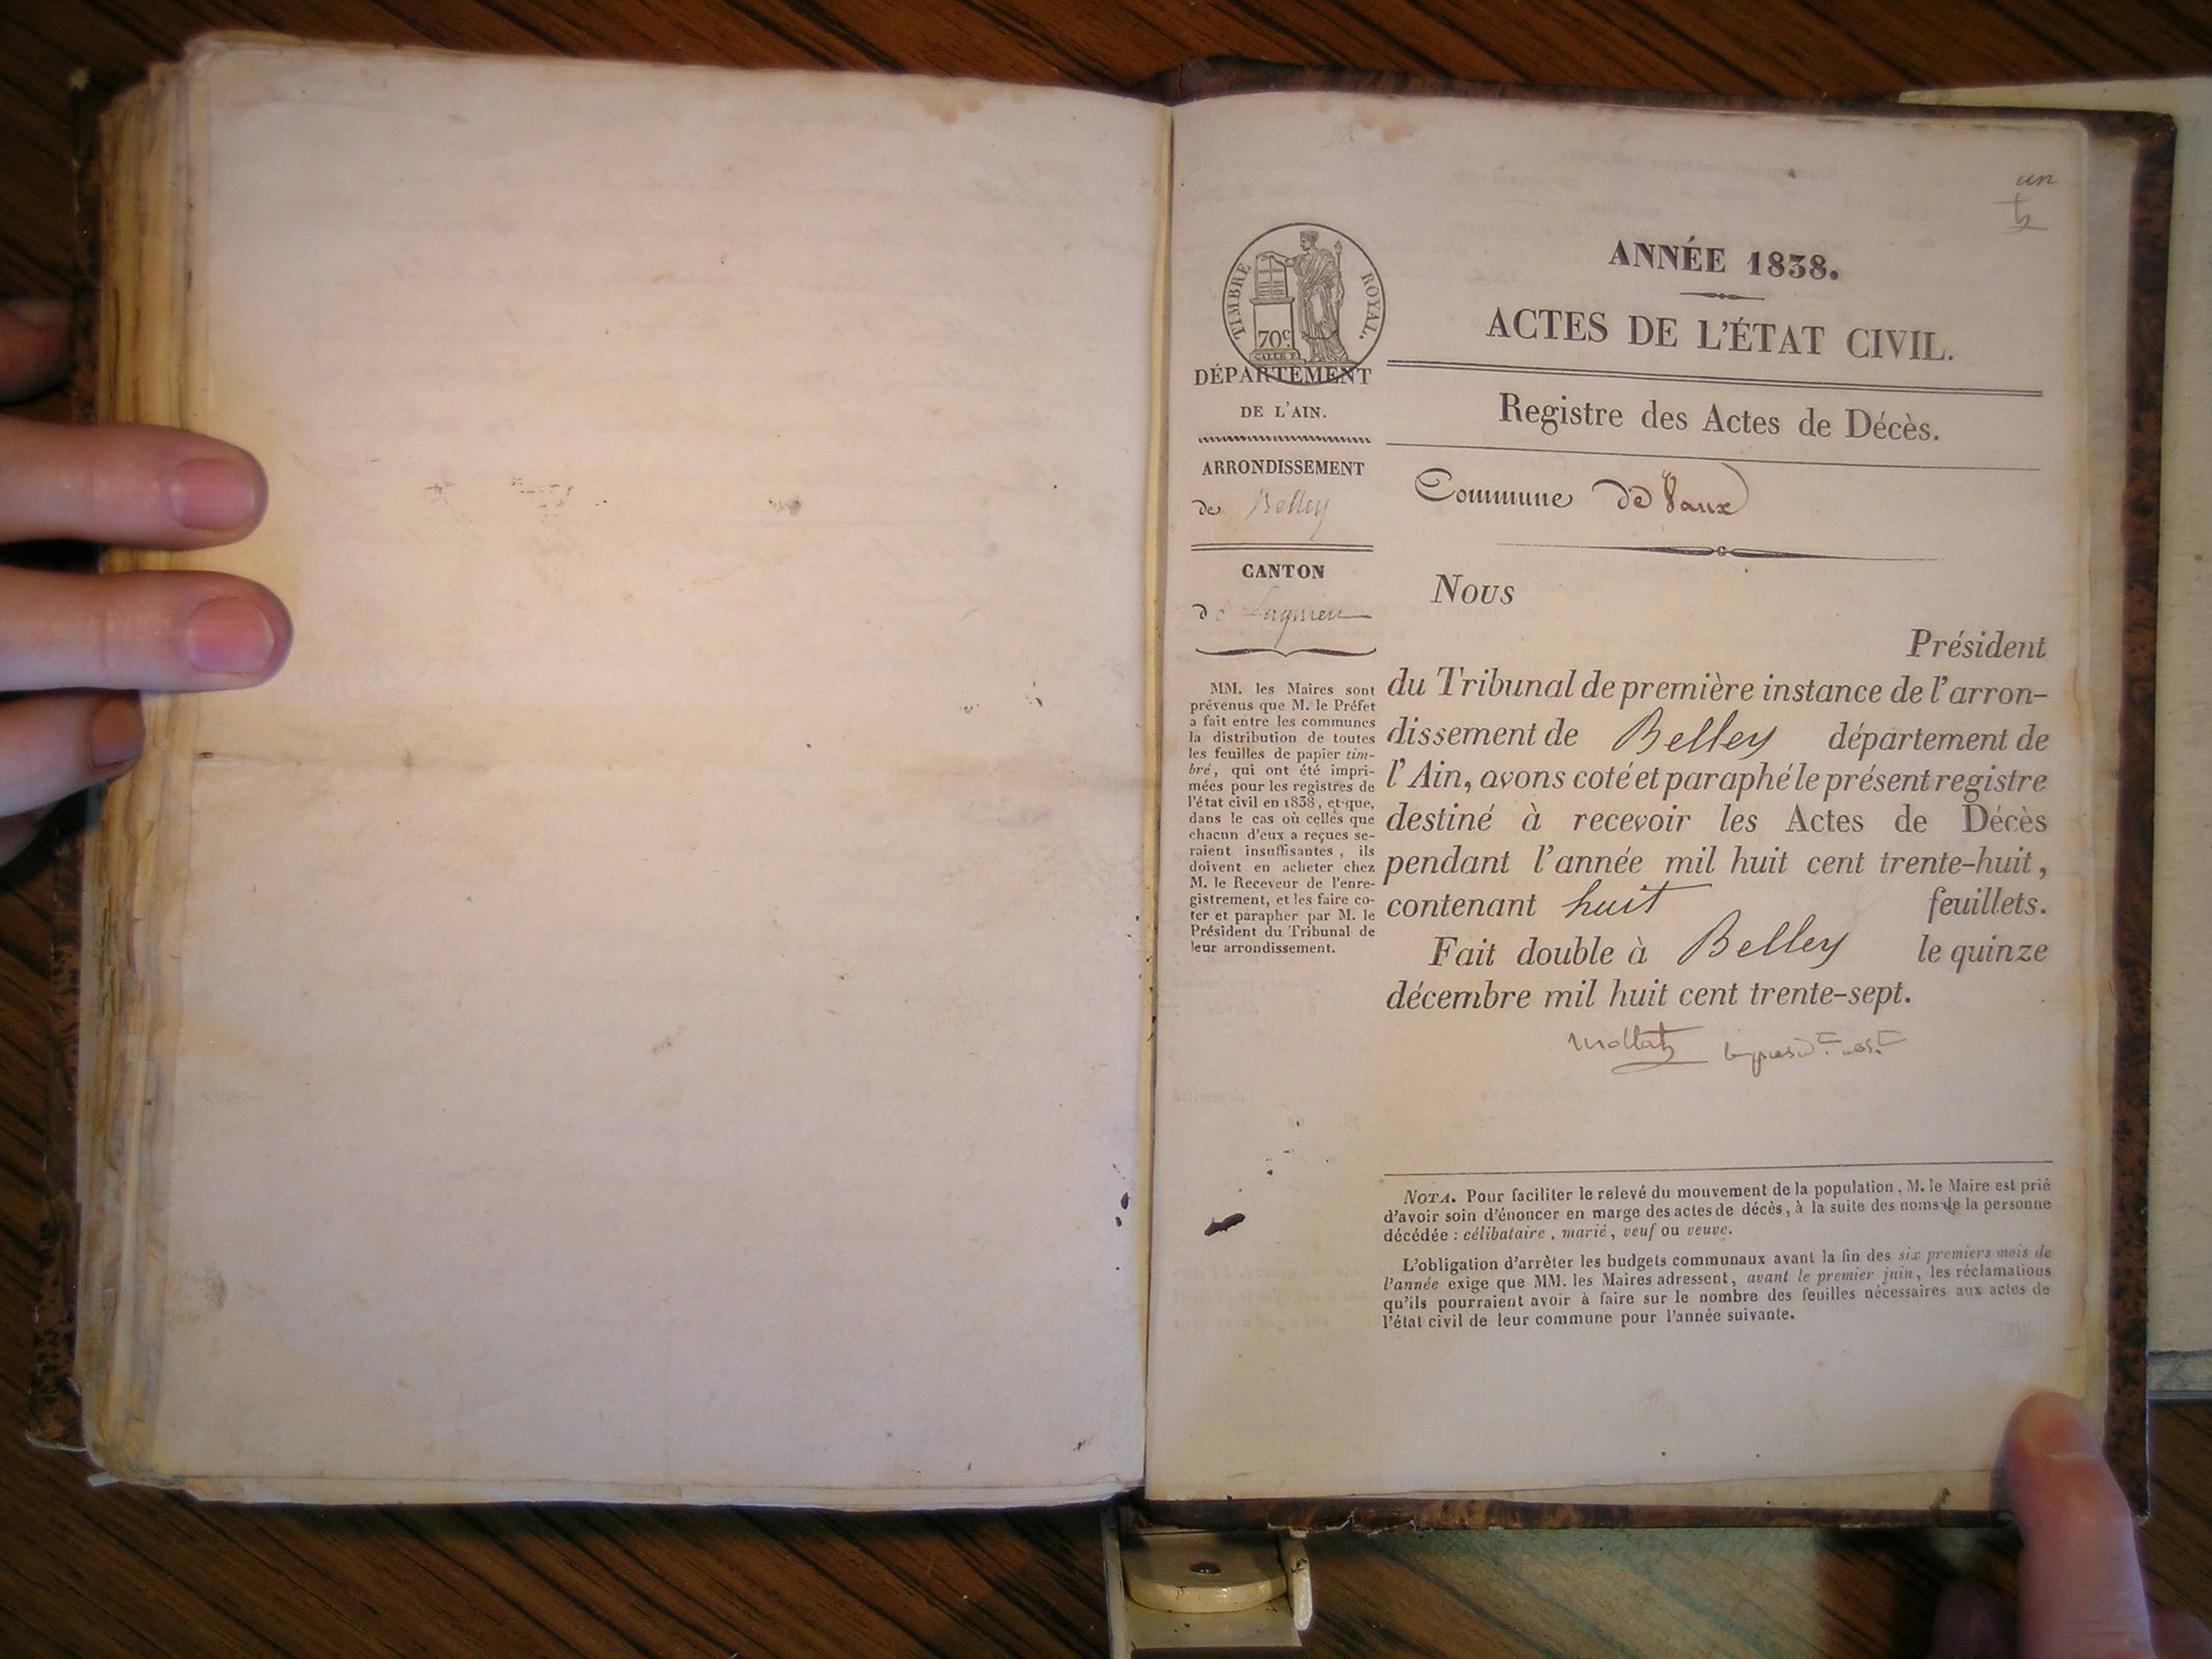 un
ANNÉE 1838.
ACTES DE L'ÉTAT CIVIL.
TIMBRE ROYAL.
70c
DÉPARTEMENT
DE L'AIN.
ARRONDISSEMENT
de Belley
CANTON
de Lagnieu
MM. les Maires sont
prévenus que M. le Préfet
a fait entre les communes
la distribution de toutes
les feuilles de papier tim-
bré, qui ont été impri-
mées pour les registres de
l'état civil en 1838, et que,
dans le cas où celles que
chacun d'eux a reçues se-
raient insuffisantes, ils
doivent en acheter chez
M. le Receveur de l'enre-
gistrement, et les faire co-
ter et parapher par M. le
Président du Tribunal de
leur arrondissement.
Registre des Actes de Décès.
Commune de Vaux
Nous
Président
du Tribunal de première instance de l'arron-
dissement de Belley département de
l'Ain, avons coté et paraphé le présent registre
destiné à recevoir les Actes de Décès
pendant l'année mil huit cent trente-huit,
contenant huit feuillets.
Fait double à Belley le quinze
décembre mil huit cent trente-sept.
NOTA. Pour faciliter le relevé du mouvement de la population, M. le Maire est prié
d'avoir soin d'énoncer en marge des actes de décès, à la suite des noms de la personne
décédée : célibataire, marié, veuf ou veuve.
L'obligation d'arrêter les budgets communaux avant la fin des six premiers mois de
l'année exige que MM. les Maires adressent, avant le premier juin, les réclamations
qu'ils pourraient avoir à faire sur le nombre des feuilles nécessaires aux actes de
l'état civil de leur commune pour l'année suivante.